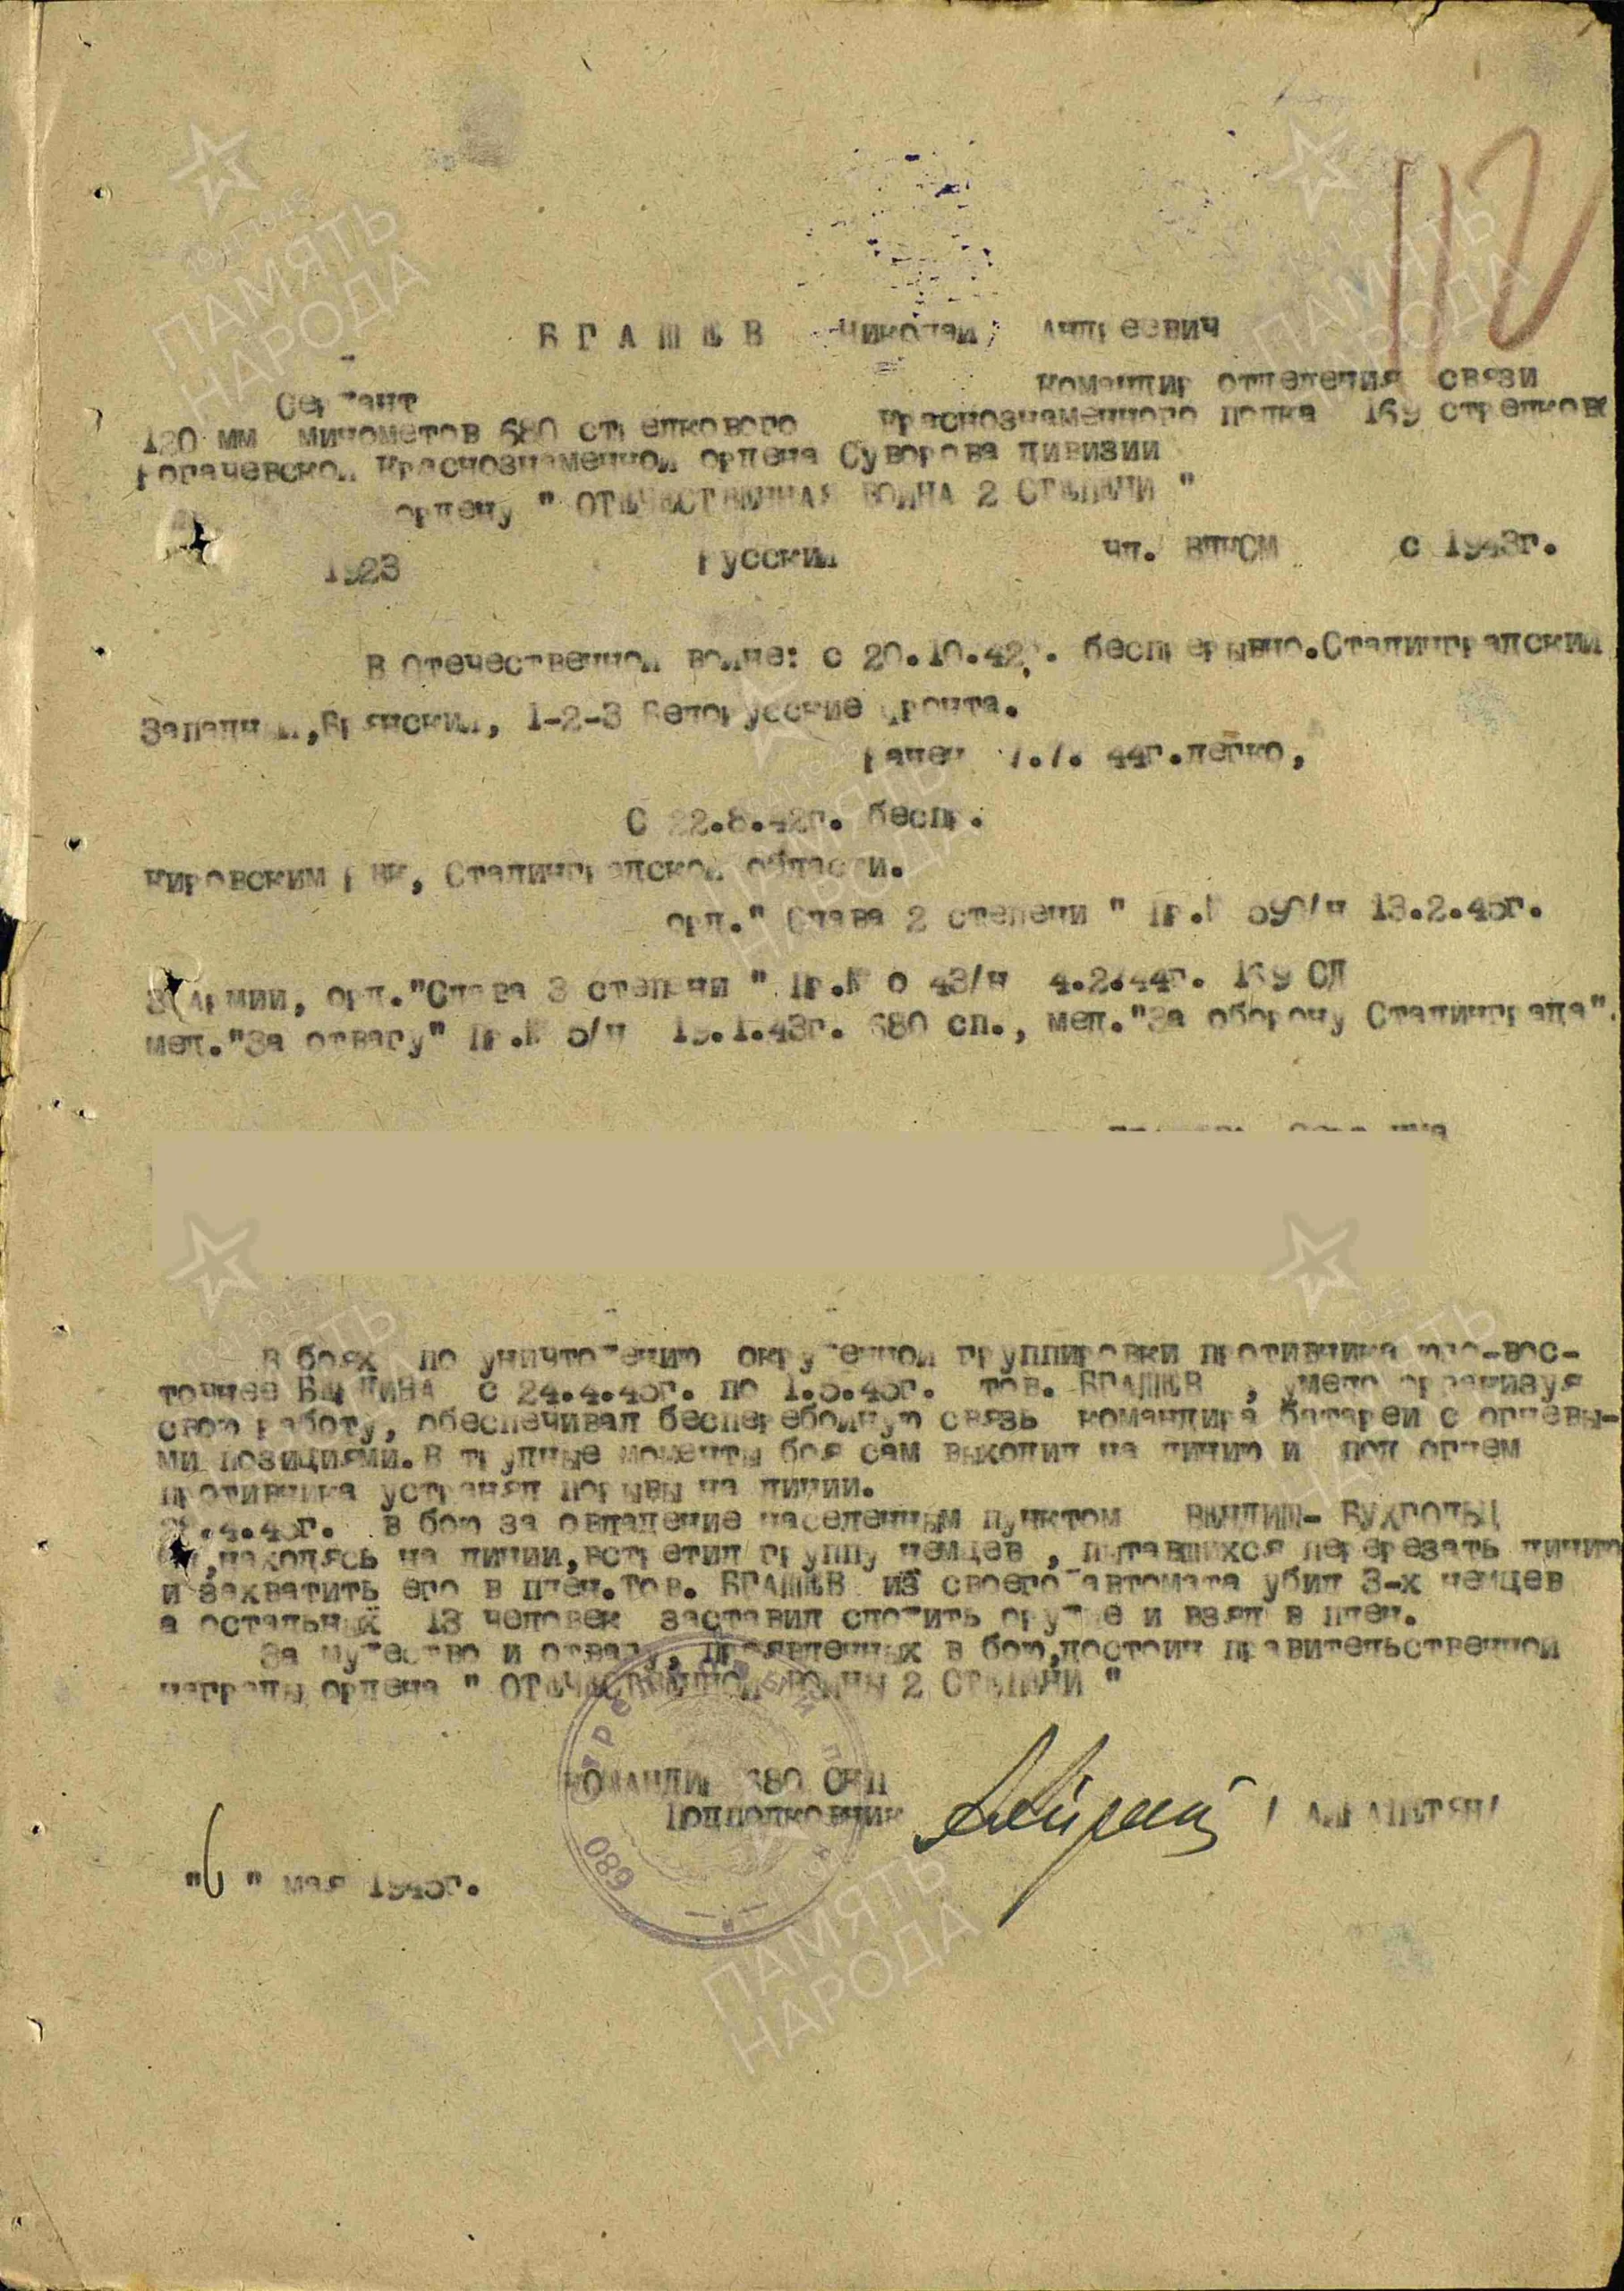 112
БГАШЕВ Николай Андреевич
Сержант командир отделения связи
120 мм минометов 680 стрелкового Краснознаменного полка 169 стрелков
Рогачевской Краснознаменной ордена Суворова дивизии
ордену " ОТЕЧЕСТВЕННАЯ ВОЙНА 2 СТЕПЕНИ "
1923 Русский чл. ВЛКСМ с 1943г.
В Отечественной войне: с 20.10.42г. беспрерывно.Сталинградский
Западный,Брянский, 1-2-3 Белорусские фронта.
Ранен 7.7. 44г.легко,
С 22.8.42г. беспр.
Кировским РВК, Сталинградской области.
орд." Слава 2 степени " Пр.№ /н 13.2.45г.
3 Армии, орд."Слава 3 степени " Пр.№ о 43/н 4.2.44г. 169 СД
мед."За отвагу" Пр.№ 5/н 19.1.43г. 680 сп., мед."За оборону Сталинграда".
В боях по уничтожению окруженной группировки противника юго-вос-
точнее БЕРЛИНА с 24.4.45г. по 1.5.45г. тов. БГАШЕВ , умело организуя
свою работу, обеспечивал бесперебойную связь командира батареи с огневы-
ми позициями.В трудные моменты боя сам выходил на линию и под огнем
противника устранял порывы на линии.
.4.45г. в бою за овладение населенным пунктом ВЕНДИШ- БУХГОЛЬЦ
он,находясь на линии,встретил группу немцев , пытавшихся перерезать линию
и захватить его в плен.Тов. БГАШЕВ из своего автомата убил 3-х немцев
а остальных 13 человек заставил сложить оружие и взял в плен.
За мужество и отвагу, проявленных в бою,достоин правительственной
награды ордена " ОТЕЧЕСТВЕННОЙ ВОЙНЫ 2 СТЕПЕНИ "
КОМАНДИР 680 СКП
Подполковник / АЙРАПЕТЯН/
"6 " мая 1945г.
680
ПАМЯТЬ
НАРОДА